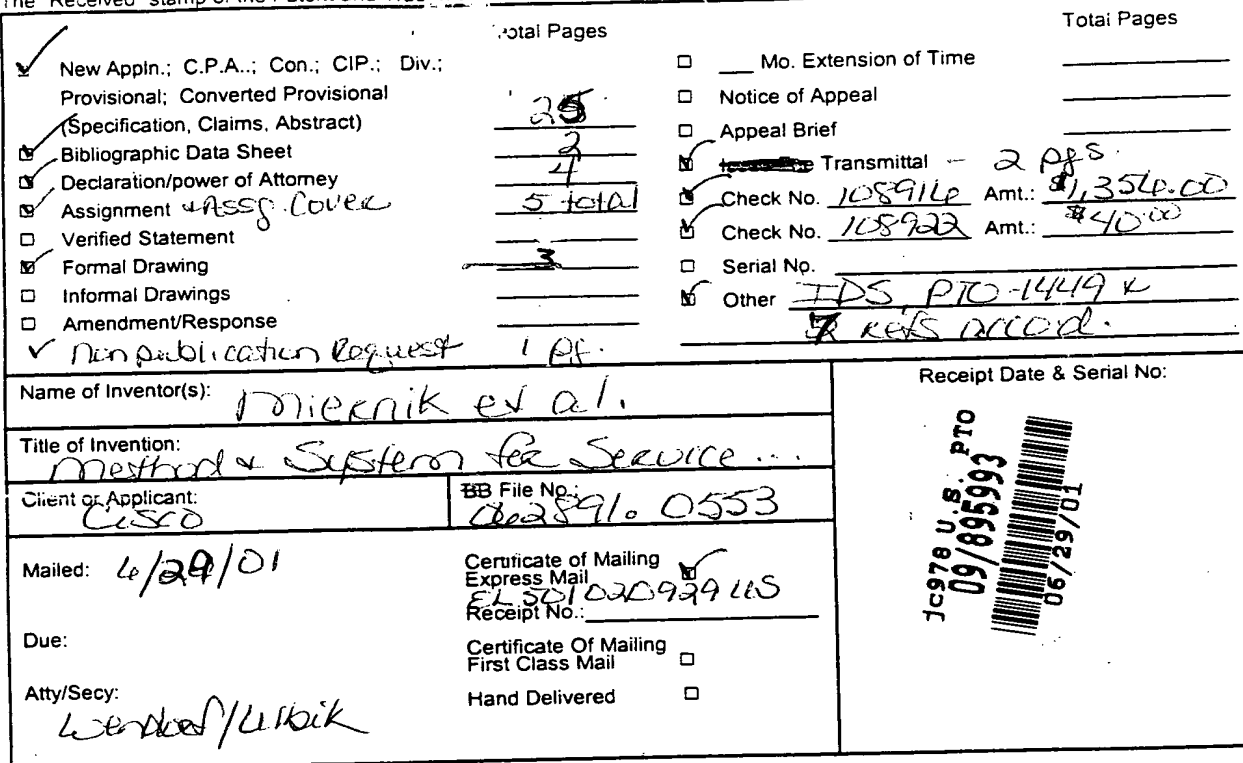 The "Received" stamp of the Patent and
Total Pages
New Appln.; C.P.A..; Con.; CIP.; Div.;
Provisional; Converted Provisional
(Specification, Claims, Abstract) 25
Bibliographic Data Sheet 2
Declaration/power of Attorney 4
Assignment & Assg. Cover 5 total
Verified Statement
Formal Drawing 3
Informal Drawings
Amendment/Response
Nonpublication Request 1 pg.
Total Pages
Mo. Extension of Time
Notice of Appeal
Appeal Brief
Transmittal - 2 pgs.
Check No. 108916 Amt.: $1,356.00
Check No. 108922 Amt.: $40.00
Serial No.
Other IDS, PTO-1449 &
7 refs accod.
Name of Inventor(s): Miernik et al.
Title of Invention:
Method & System for Service ...
Client or Applicant:
Cisco
BB File No.:
062891.0553
Mailed: 6/29/01
Due:
Atty/Secy:
Certificate of Mailing
Express Mail
EL501020929US
Receipt No.:
Certificate Of Mailing
First Class Mail
Hand Delivered
Receipt Date & Serial No:
jc978 U.S. PTO
09/895993
06/29/01